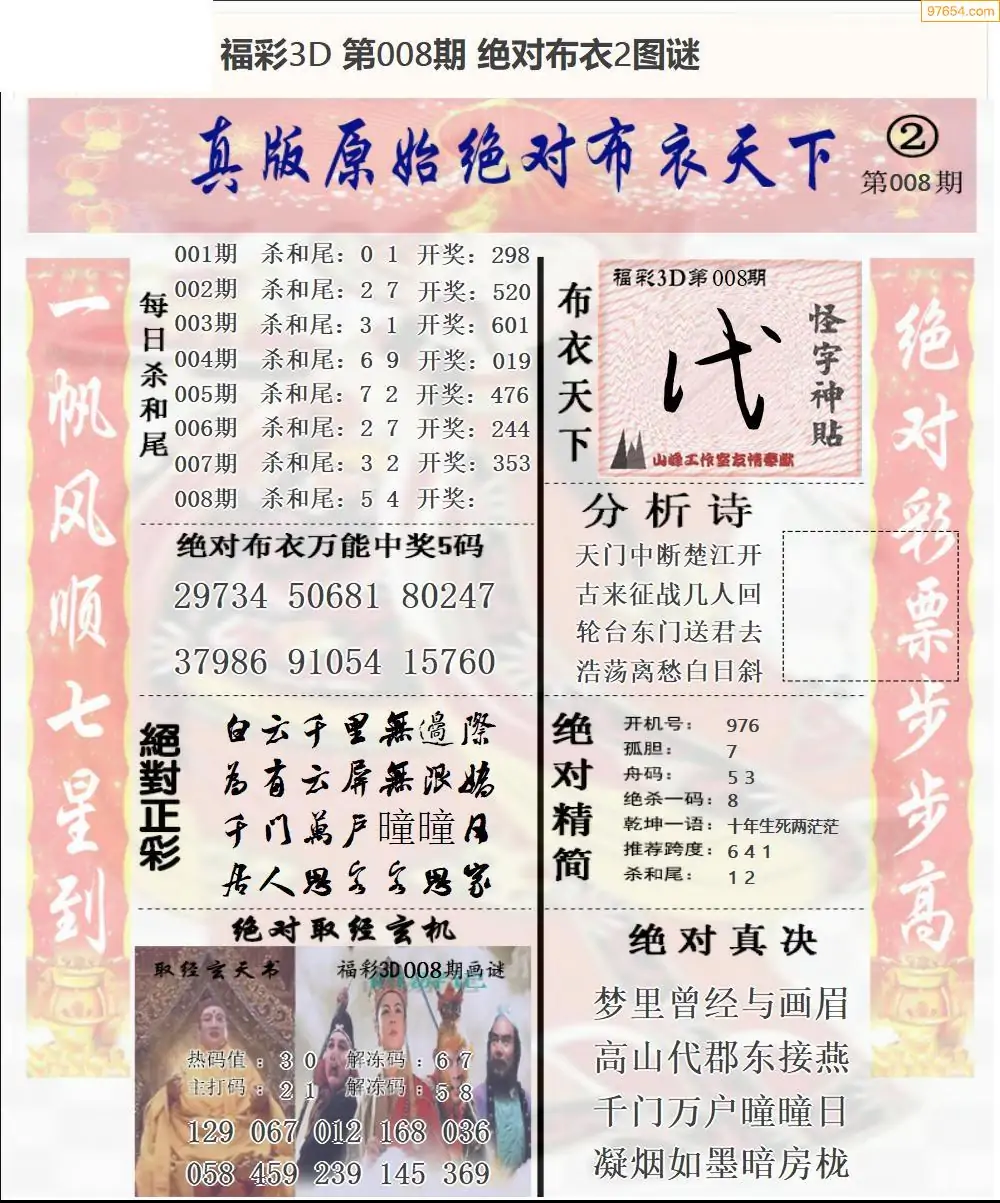 97654.com
福彩3D 第008期 绝对布衣2图谜
真版原始绝对布衣天下
②
第008期
一帆风顺七星到
每日杀和尾
001期 杀和尾：0 1 开奖：298
002期 杀和尾：2 7 开奖：520
003期 杀和尾：3 1 开奖：601
004期 杀和尾：6 9 开奖：019
005期 杀和尾：7 2 开奖：476
006期 杀和尾：2 7 开奖：244
007期 杀和尾：3 2 开奖：353
008期 杀和尾：5 4 开奖：
绝对布衣万能中奖5码
29734 50681 80247
37986 91054 15760
絕對正彩
白云千里無邊際
為有云屏無限嬌
千门萬户曈曈日
居人思客客思家
绝对取经玄机
取经玄天书
福彩3D008期画谜
热码值：3 0 解冻码：6 7
主打码：2 1 解冻码：5 8
129 067 012 168 036
058 459 239 145 369
布衣天下
福彩3D第008期
怪字神貼
山峰工作室友情奉献
分析诗
天门中断楚江开
古来征战几人回
轮台东门送君去
浩荡离愁白日斜
绝对精简
开机号：976
孤胆：7
舟码：5 3
绝杀一码：8
乾坤一语：十年生死两茫茫
推荐跨度：6 4 1
杀和尾：1 2
绝对真决
梦里曾经与画眉
高山代郡东接燕
千门万户曈曈日
凝烟如墨暗房栊
绝对彩票步步高